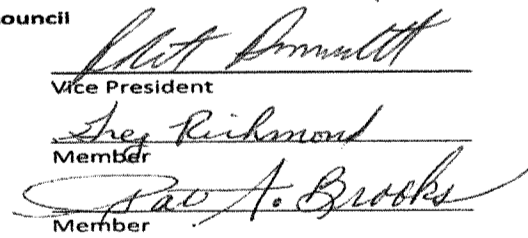 ouncil
Vice President
Greg Richmond
Member
Pat A. Brooks
Member